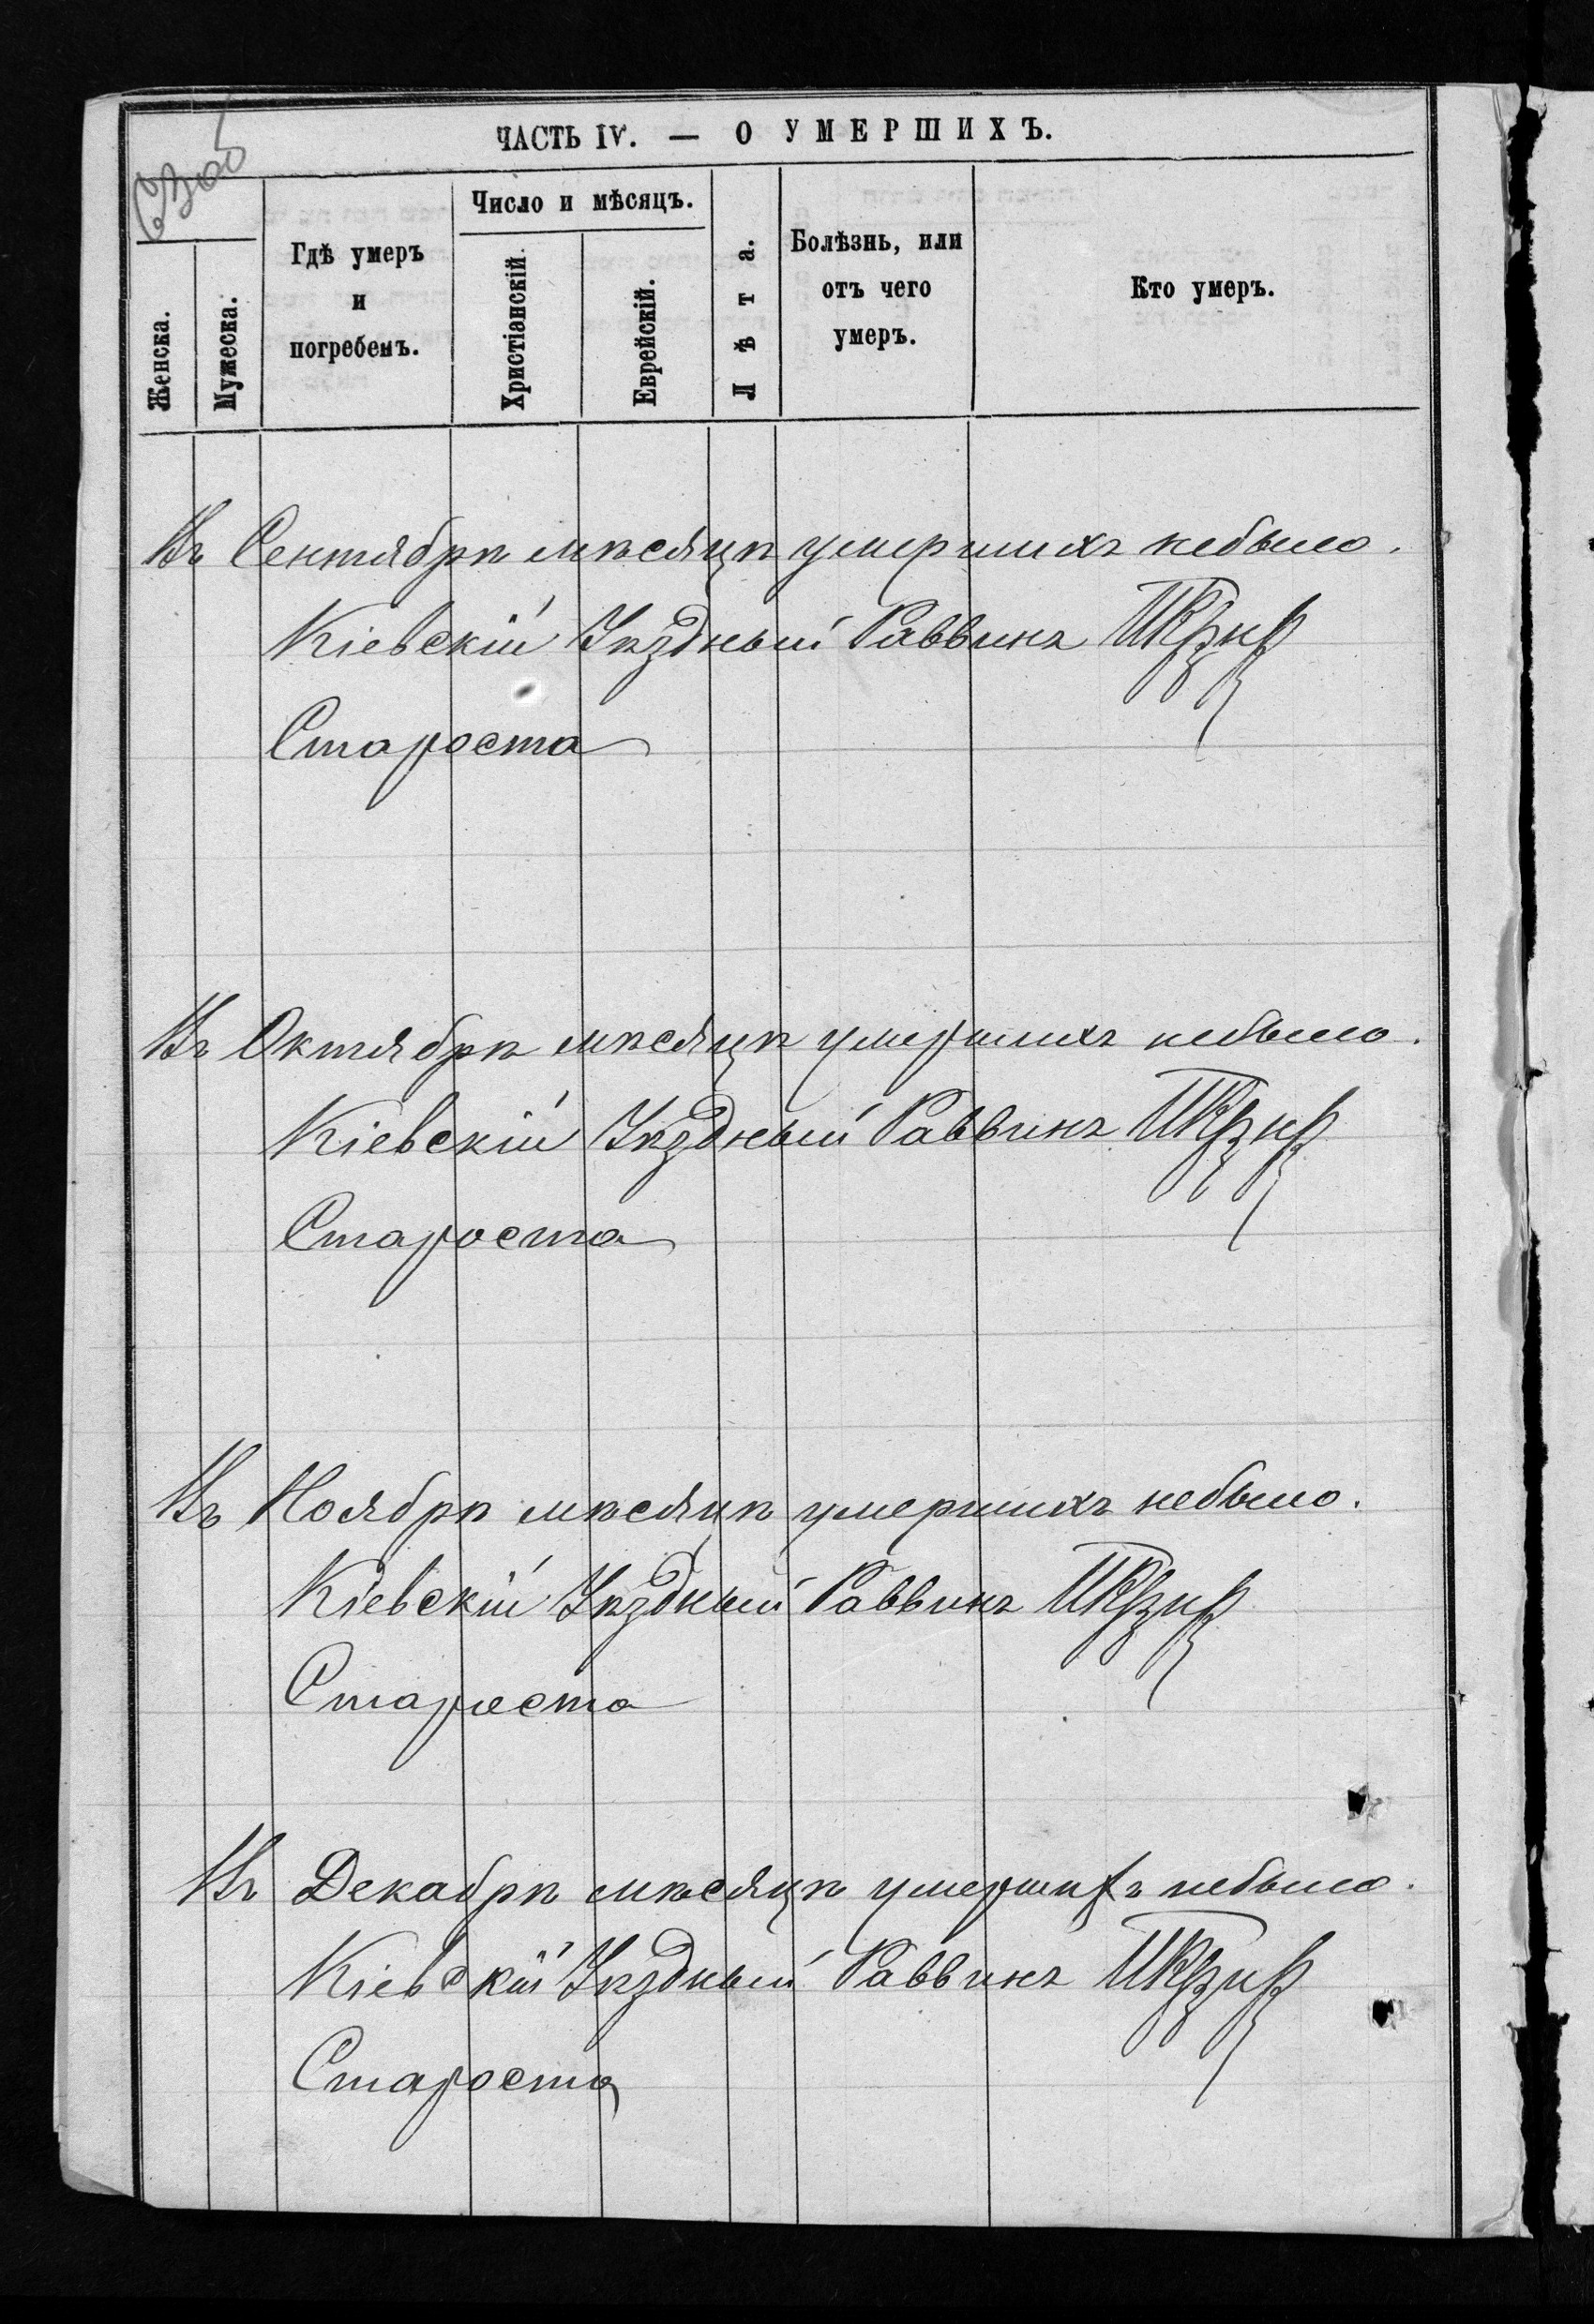 ЧАСТЬ IV. — О УМЕРШИХЪ.
Женска.
Мужеска.
Гдѣ умеръ
и
погребенъ.
Число и мѣсяцъ.
Христіанскій.
Еврейскій.
Лѣта.
Болѣзнь, или
отъ чего
умеръ.
Кто умеръ.
Въ Сентябрѣ мѣсяцѣ умершихъ небыло.
Кіевскій Уѣздный Раввинъ
Староста
Въ Октябрѣ мѣсяцѣ умершихъ небыло.
Кіевскій Уѣздный Раввинъ
Староста
Въ Ноябрѣ мѣсяцѣ умершихъ небыло.
Кіевскій Уѣздный Раввинъ
Староста
Въ Декабрѣ мѣсяцѣ умершихъ небыло.
Кіевскій Уѣздный Раввинъ
Староста